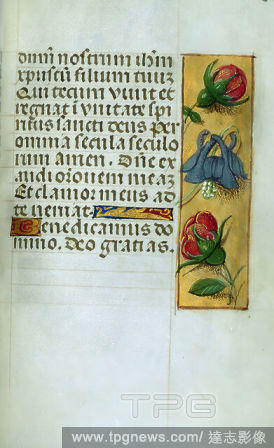 dominum nostrum ihm
xpm filium tuum
Qui tecum vivit et
regnat i vnitate spi
ritus sancti deus per
omnia secula seculo
rum amen. Dñe ex
audi orõem meaz
Et clamor meus ad
te veniat.
Benedicamus do
mino. Deo gratias.
TPG
www.tpgnews.com/ 達志影像